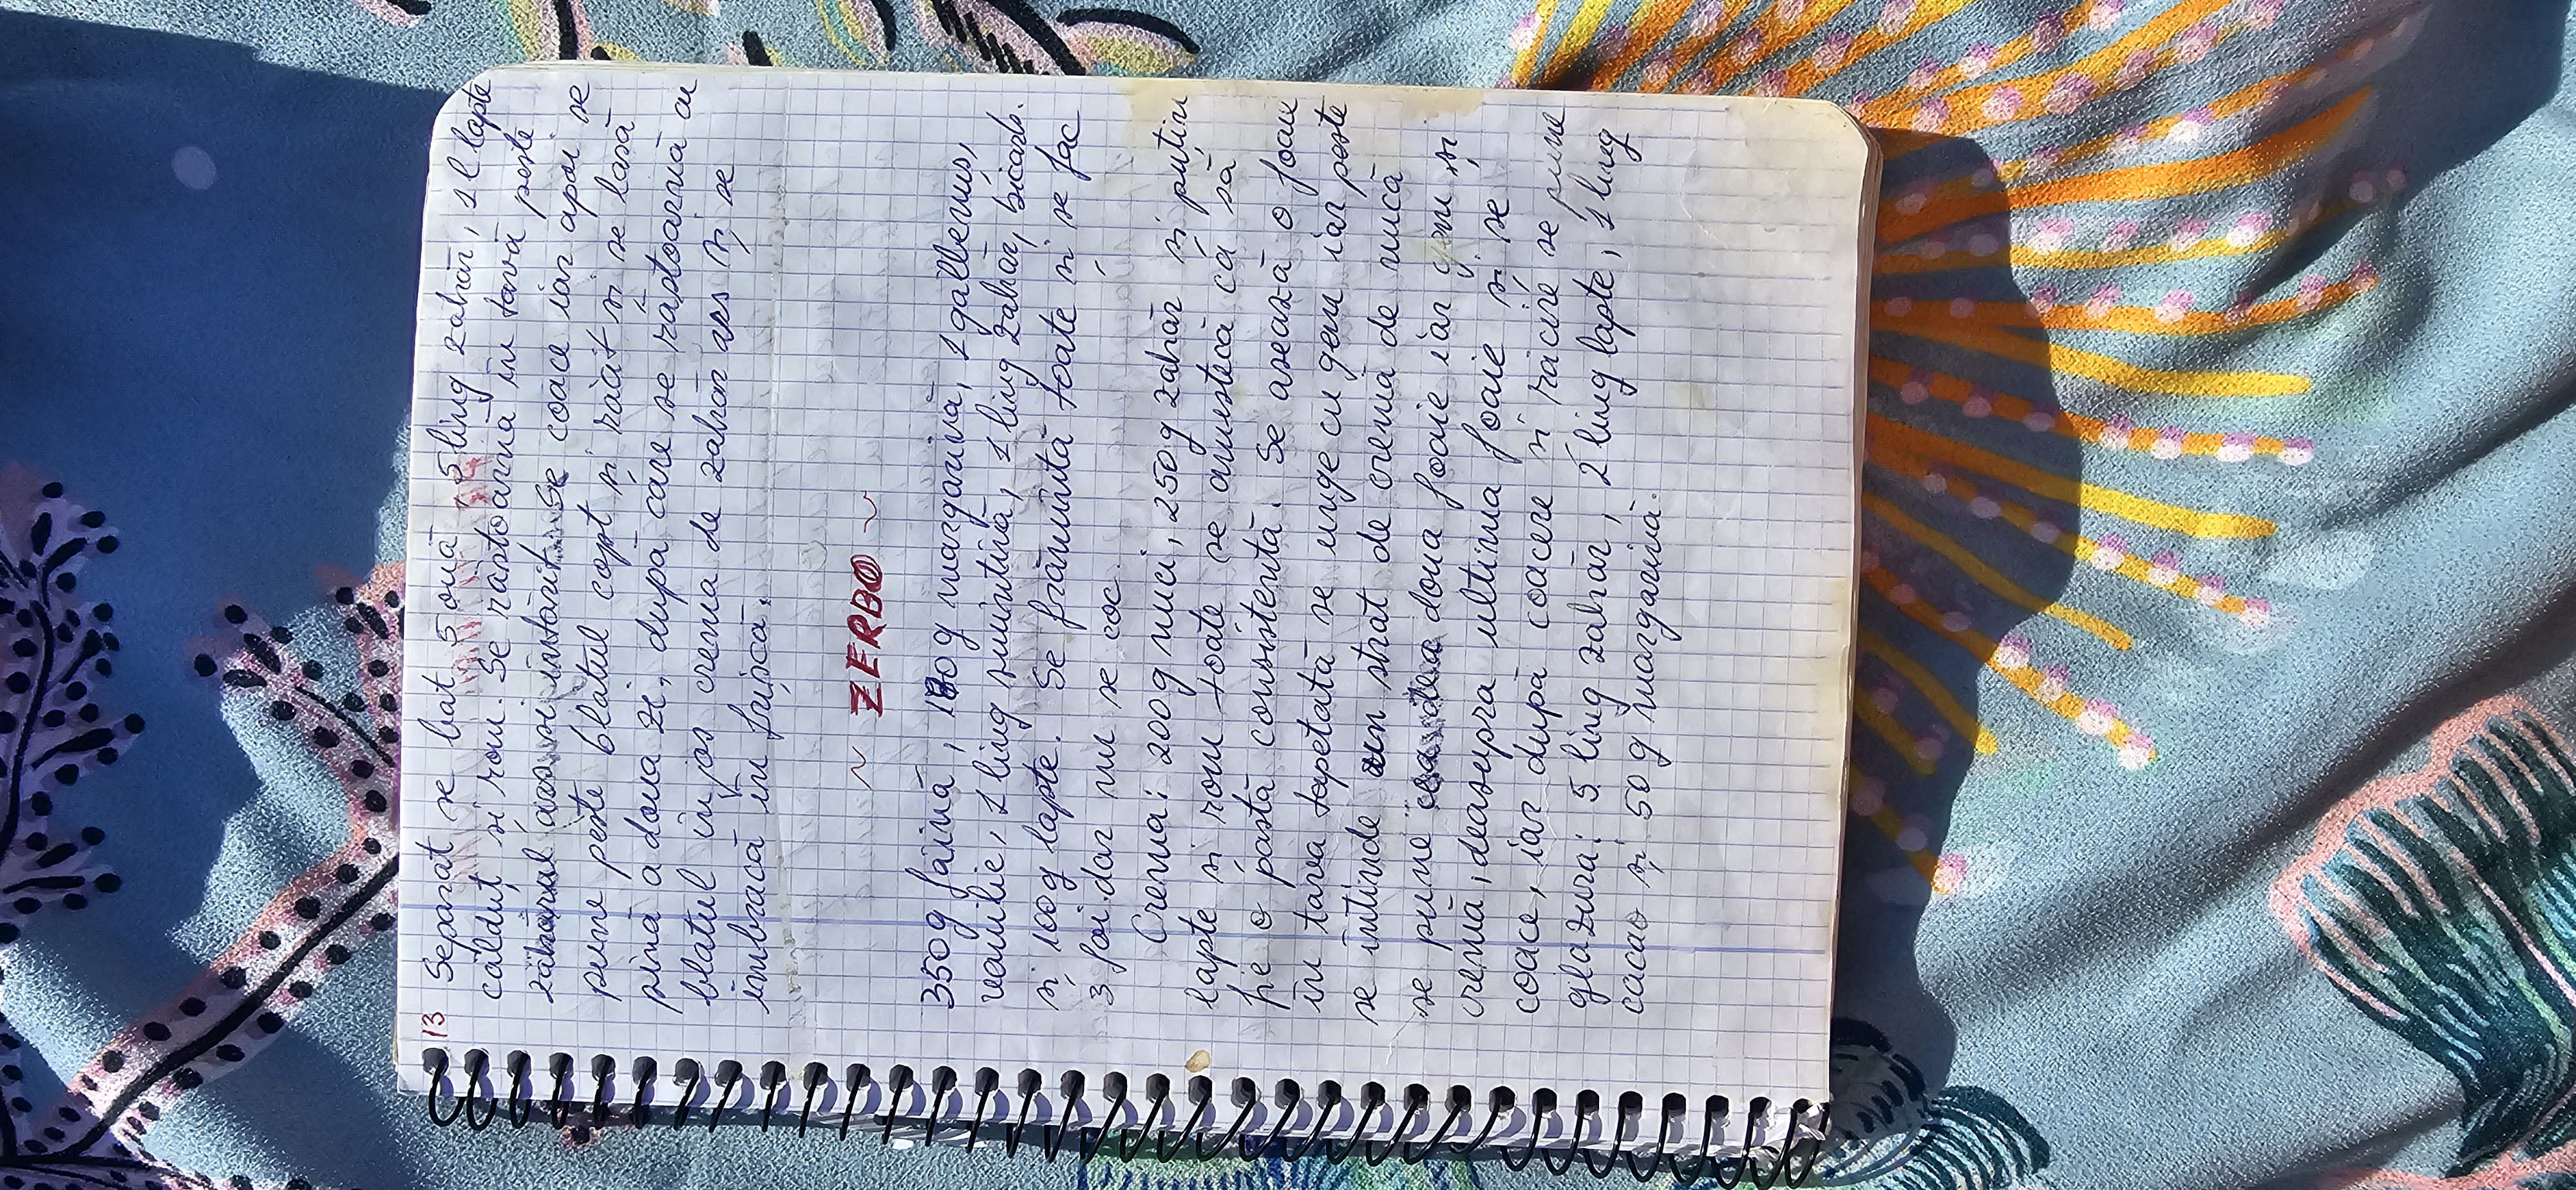 13 Separat se bat 5 ouă, 5 ling zahăr, 1 l lapte
călduț și rom. Se răstoarnă în tavă peste
zahărul ars și întărit. Se coace iar apoi se
pune peste blatul copt și răcit și se lasă
pină a doua zi, după care se răstoarnă cu
blatul în jos crema de zahăr ars și se
îmbracă în frișcă.
~ ZERBO ~
350g făină, 180g margarină, 1 gălbenuș,
vanilie, 1 ling smintină, 1 ling zahăr, bicarb.
și 100g lapte. Se frămîntă toate și se fac
3 foi dar nu se coc.
Crema: 200g nuci, 250g zahăr și puțin
lapte și rom toate se amestecă ca să
fie o pastă consistentă. Se asează o foaie
în tava tapetată se unge cu gem iar peste
se intinde un strat de cremă de nucă
se pune cea de a doua foaie iar gem și
cremă, deasupra ultima foaie și se
coace, iar după coacere si răcire se pune
glazura: 5 ling zahăr, 2 ling lapte, 1 ling
cacao și 50 g margarină.